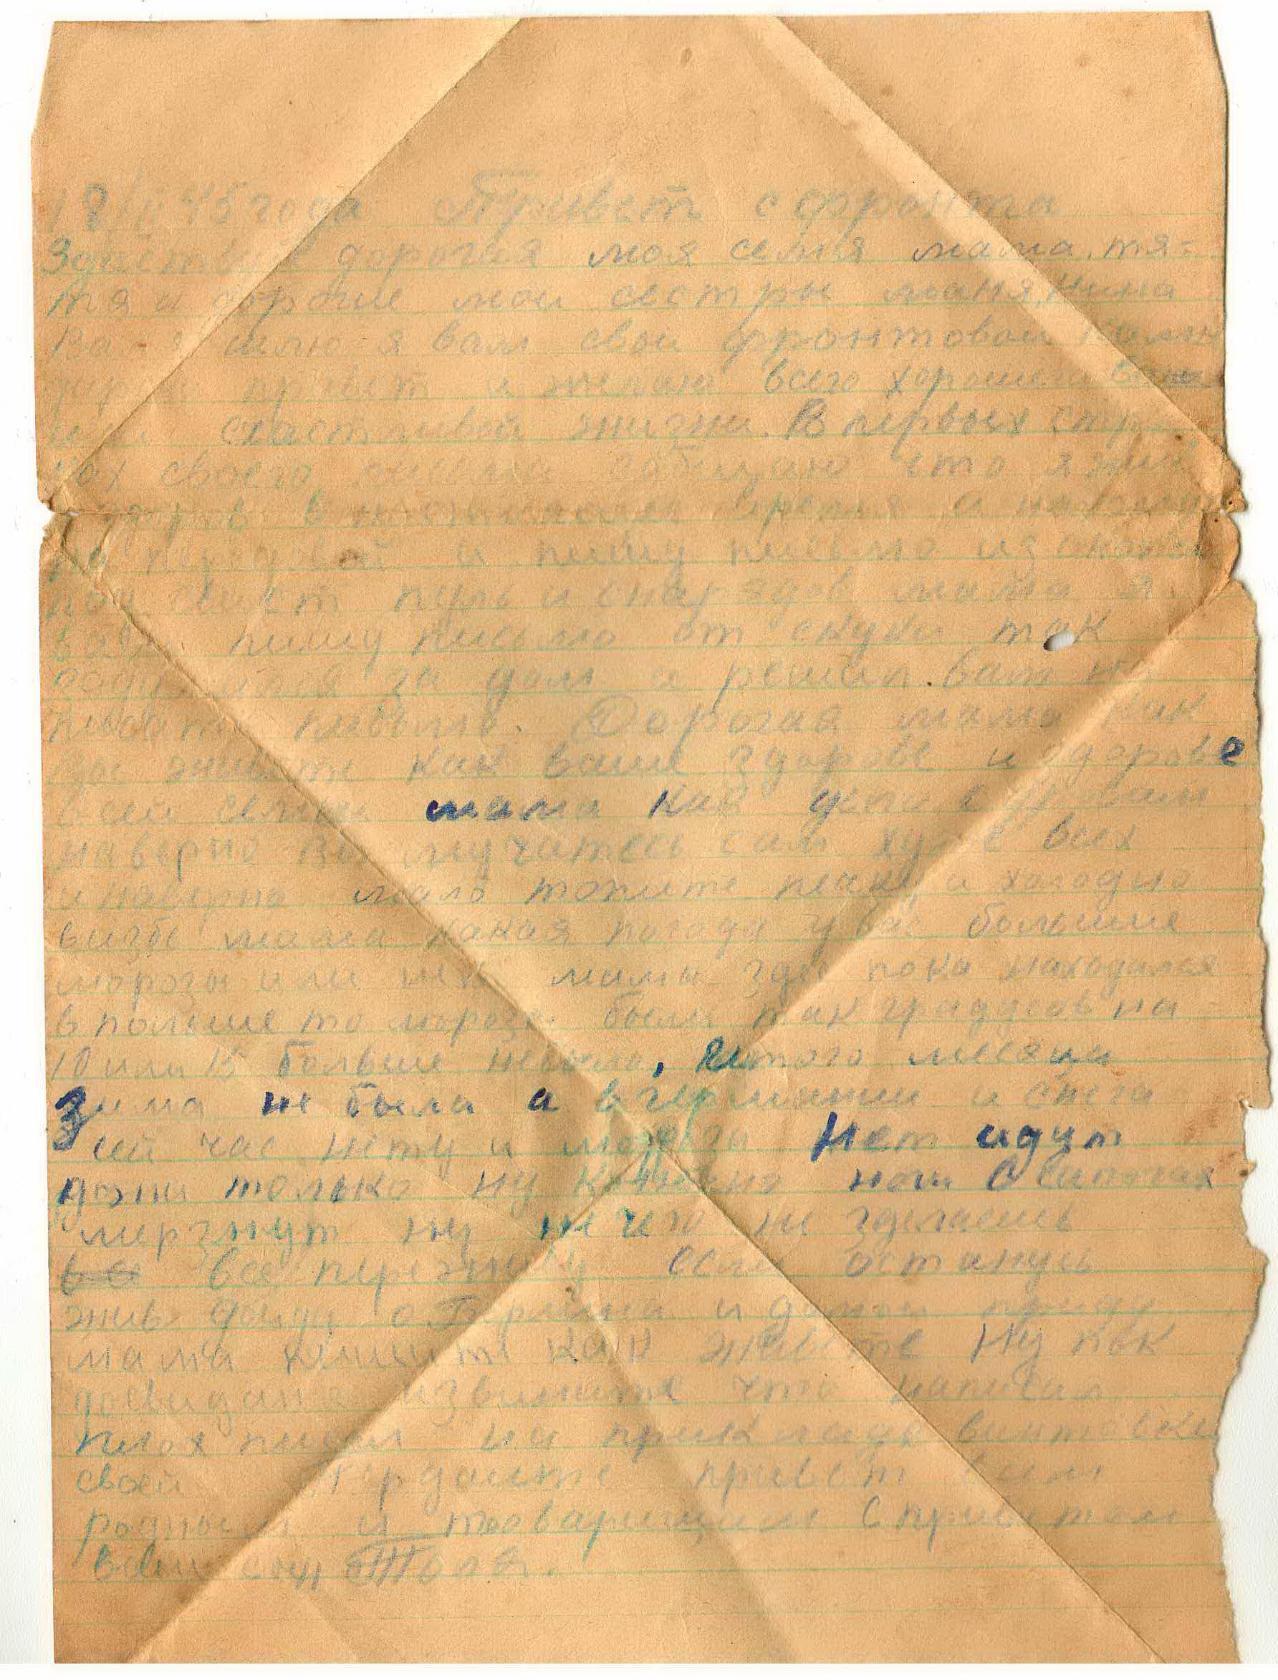 18/II 45 года Привет с фронта
дорогая моя семья мама, тя-
тя и дорогие мои сестры Маня, Нина
Валя шлю я вам свой фронтовой
привет и желаю всего хорошего
счастливой жизни. В первых стр
ках своего письма сообщаю что я жив
здоров в настоящем время и нахожу
на передовой и пишу письмо из окопа
под свист пуль и снарядов мама я
вам пишу письмо от скуки так
за дом и решил вам на
писать письмо. Дорогая мама как
вы живете как ваше здорове и здорове
всей семьи мама как дела с дровам
наверно вы мучитесь сам хуже всех
и наверно мало топите печку и холодно
визбе мама какая погода у вас большие
морозы или нет мама здес пока находился
в польше то мороз были так градусов на
10 или 15 больше небыло,
зима не была а в германии и снега
сей час нету и мороза Нет идут
дожи только ну конечно ноги в сапогах
мерзнут ну нечего не зделаеш
все переживу если останусь
жив дойду о Берлина и домой приду
мама пишите как живете Ну пок
досвидания извините что написал
плох писал на прикладе винтовки
своей Передайте привет всем
родным и товарищам С приветом
ваш сын Толя.